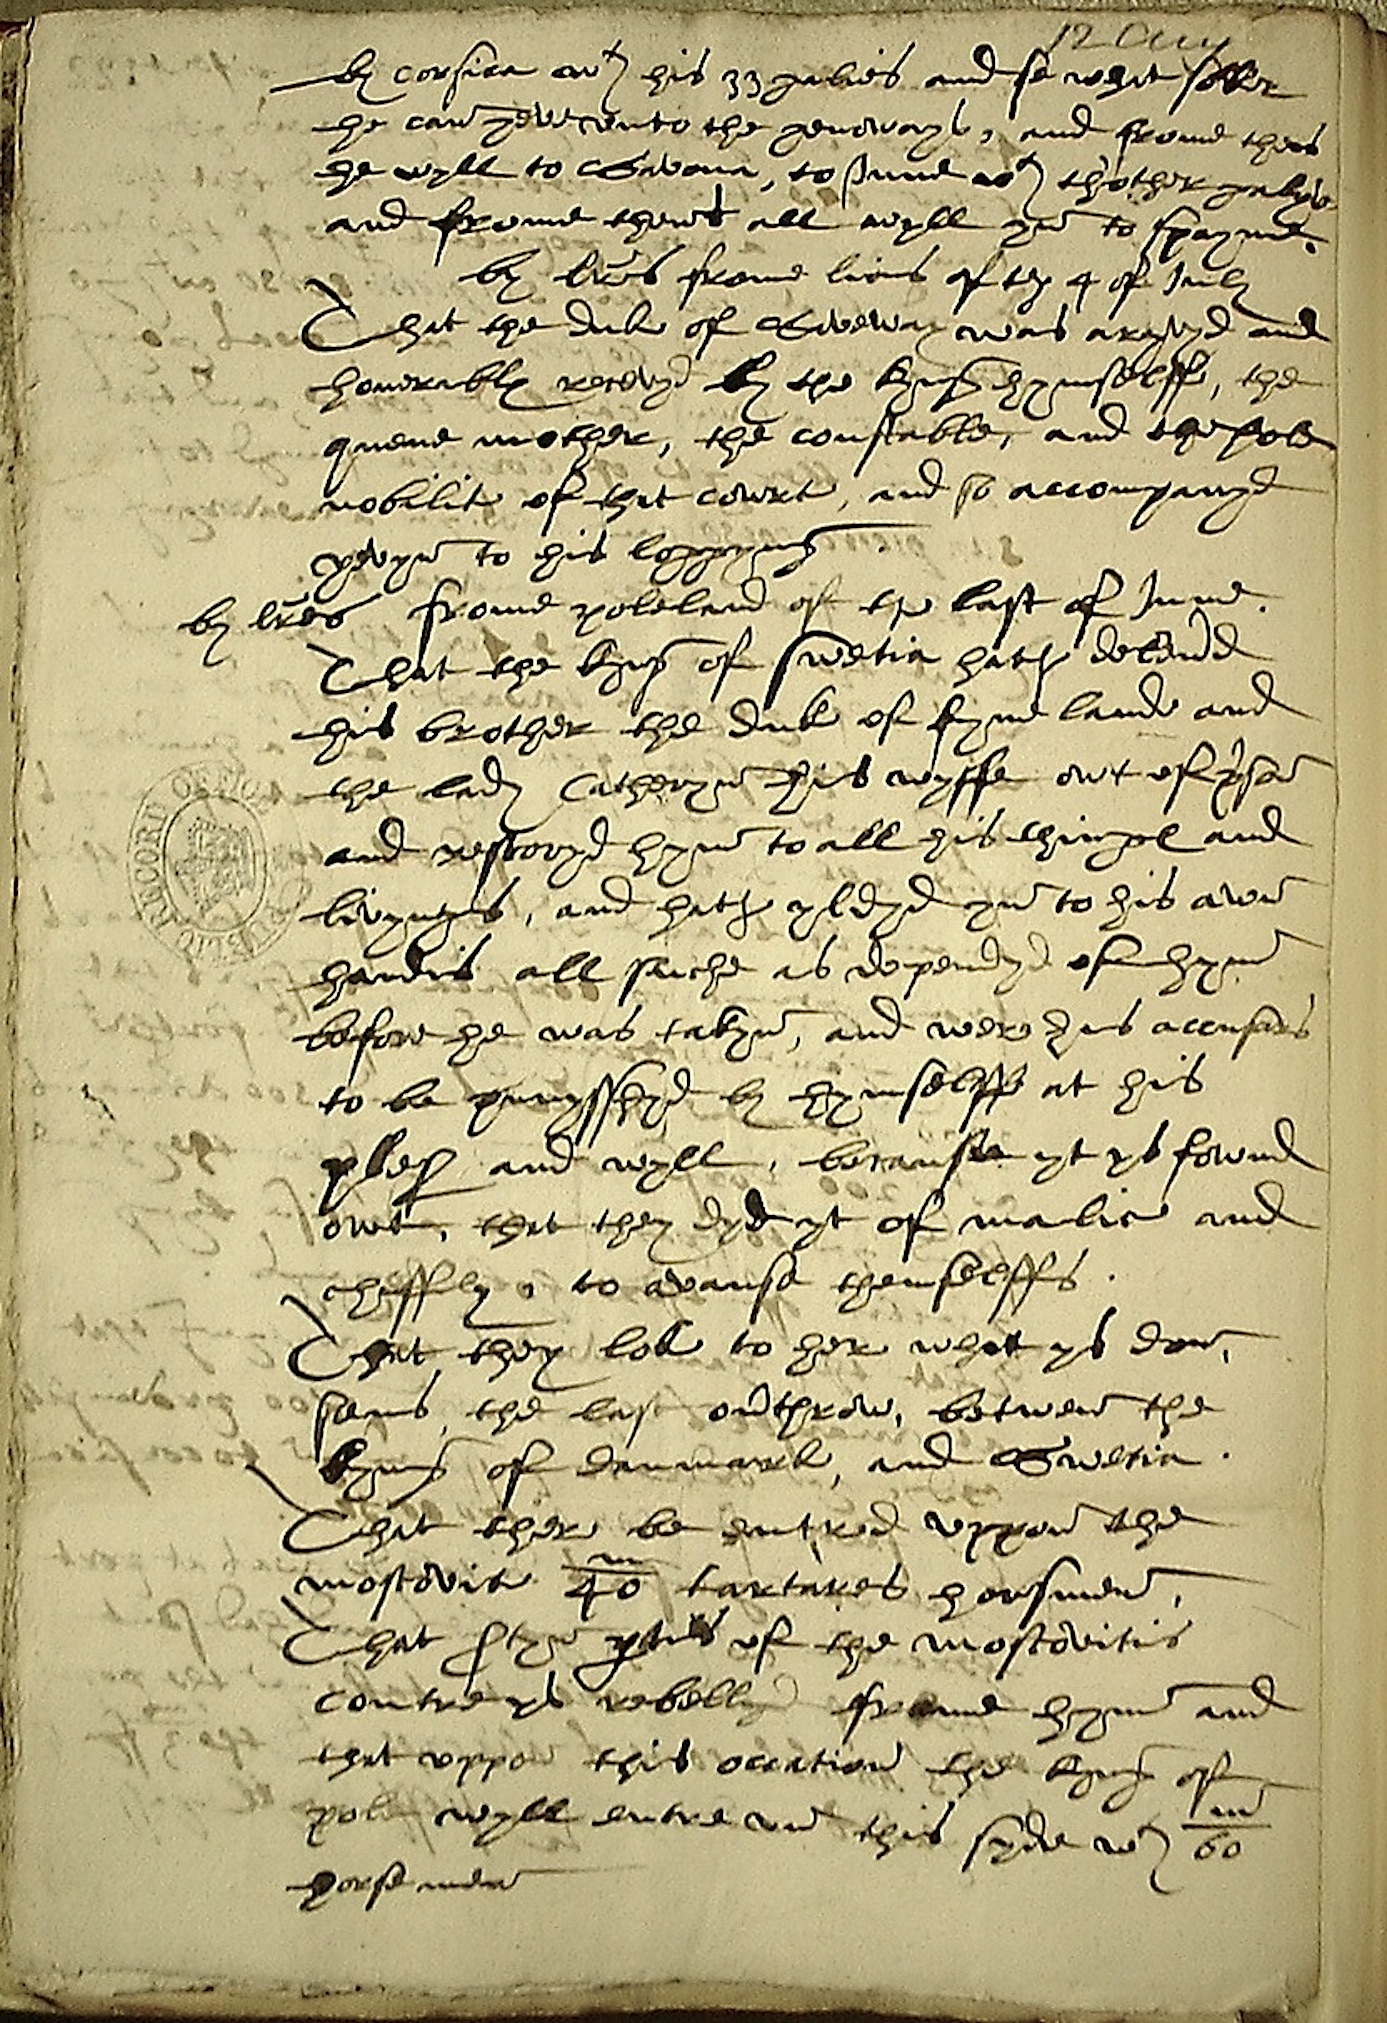 12 Aug
by corsica wt his 33 galies and se what soker
he can geve unto the genoways, and frome thens
he wyll to Savona, to Joune wt thother galyse
and frome thens all wyll yn to spayne.
by lres frome lions of the 4 of July
That the duke of Savoway was aryvyd and
honorably recevyd by the kyng hymselff, the
quene mother, the constable, and the hole
nobilite of that cowrt, and so accompanyd
yevyn to his loggyng
by lres frome poleland of the last of June.
That the kyng of swetia hath delivrid
his brother the duke of fynelande and
the lady Catheryn his wyffe owt of prison
and restoryd hym to all his things and
livyngs, and hath yeldyd yn to his awn
handis all suche as dependyd of hym
before he was takyn, and were his accusars
to be punysshyd by hymselff at his
plesr and wyll, because yt ys fownd
owt, that they dyd yt of malice and
cheffly, to avanse themselffs.
That they loke to her what ys don,
sens the last ovthrow, betwen the
kyng of denmark, and Swetia.
That ther be entred uppon the
moscovite 40 m tartares horsmen,
That styn ptes of the moscovitis
contre ys rebellyd frome hym and
that uppon this occation the kyng of
pole wyll entre on this syde wt 60 m
horsemen
PUBLIC RECORD OFFICE